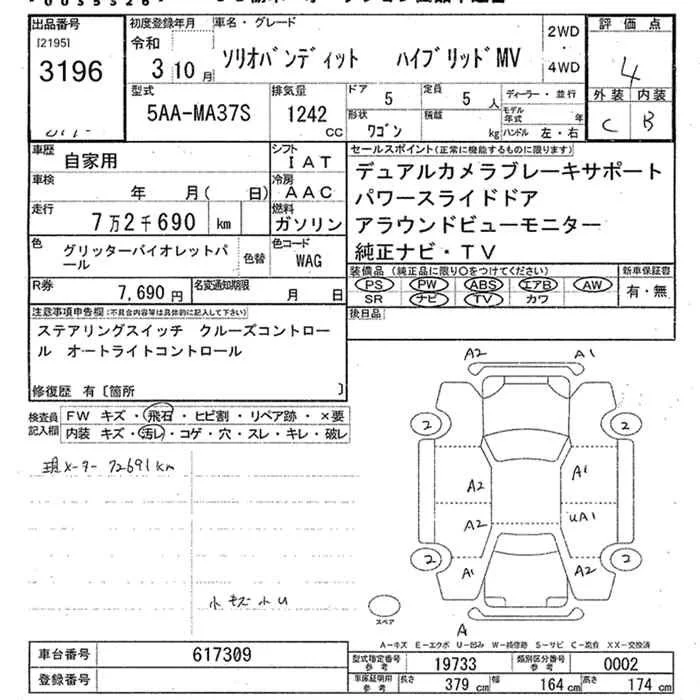 出品番号 初度登録年月 車名・グレード 2WD ・ 4WD 評価点
[2195] 令和
3196 3 10月 ソリオバンディット ハイブリッドMV 4
型式 排気量 ドア 定員 ディーラー・並行 外装 内装
5AA-MA37S 1242 CC 5 5人 モデル年式 年 C B
形状 積載 ハンドル 左・右
ワゴン kg
車歴 自家用 シフト IAT セールスポイント(正常に機能するものに限ります)
車検 年 月( 日) 冷房 AAC デュアルカメラブレーキサポート
走行 7万2千690 km 燃料 ガソリン パワースライドドア
アラウンドビューモニター
純正ナビ・TV
色 グリッターバイオレットパール 色替 色コード WAG
装備品(純正品に限り○をつけてください) 新車保証書
PS PW ABS エアB AW 有・無
SR ナビ TV カワ
R券 7,690円 名変通知期限 月 日
後日品
注意事項申告欄(不具合内容等は具体的に記入して下さい)
ステアリングスイッチ クルーズコントロー
ル オートライトコントロール
修復歴 有〔箇所 〕
検査員記入欄 FW キズ・飛石・ヒビ割・リペア跡・×要
内装 キズ・汚レ・コゲ・穴・スレ・キレ・破レ
現メーター 72691km
小キズ小U
A2 A1
2 2
A2 A1
A2 UA1
2 2
A1 A2
A
スペア
A-キズ E-エクボ U-凹み W-補修跡 S-サビ C-腐食 XX-交換済
車台番号 617309
登録番号
型式指定番号 参考 19733 類別区分番号 参考 0002
車庫証明用 参考 長さ 379cm 幅 164cm 高さ 174cm